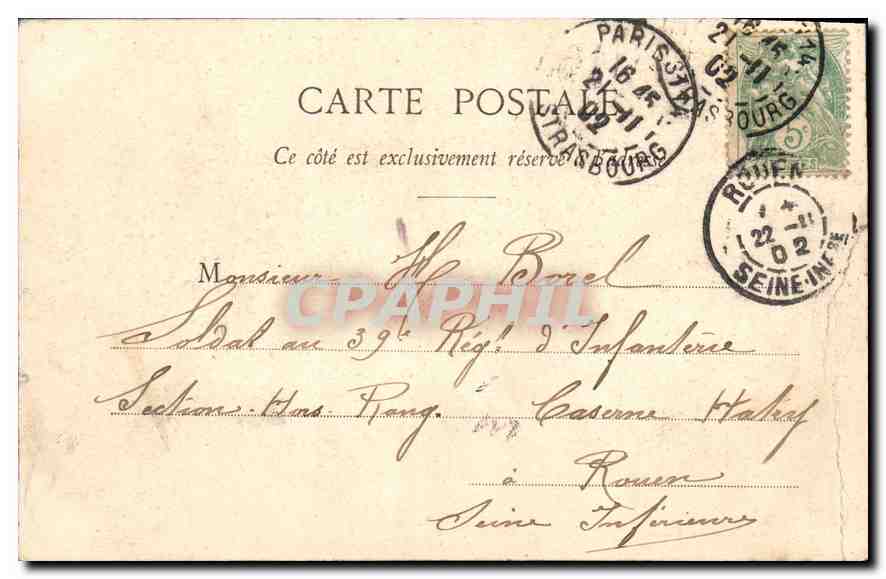 CARTE POSTALE
Ce côté est exclusivement réservé à l'adresse
PARIS STRASBOURG
16 45
21 -11
02
14
16 45
21 -11
02
5c
ROUEN
22 -11
02
SEINE-INFRE
Monsieur H Borel
CPAPHIL
Soldat au 39e Régt d'Infanterie
Section-Hors-Rang. Caserne Hatry
à Rouen
Seine Inférieure